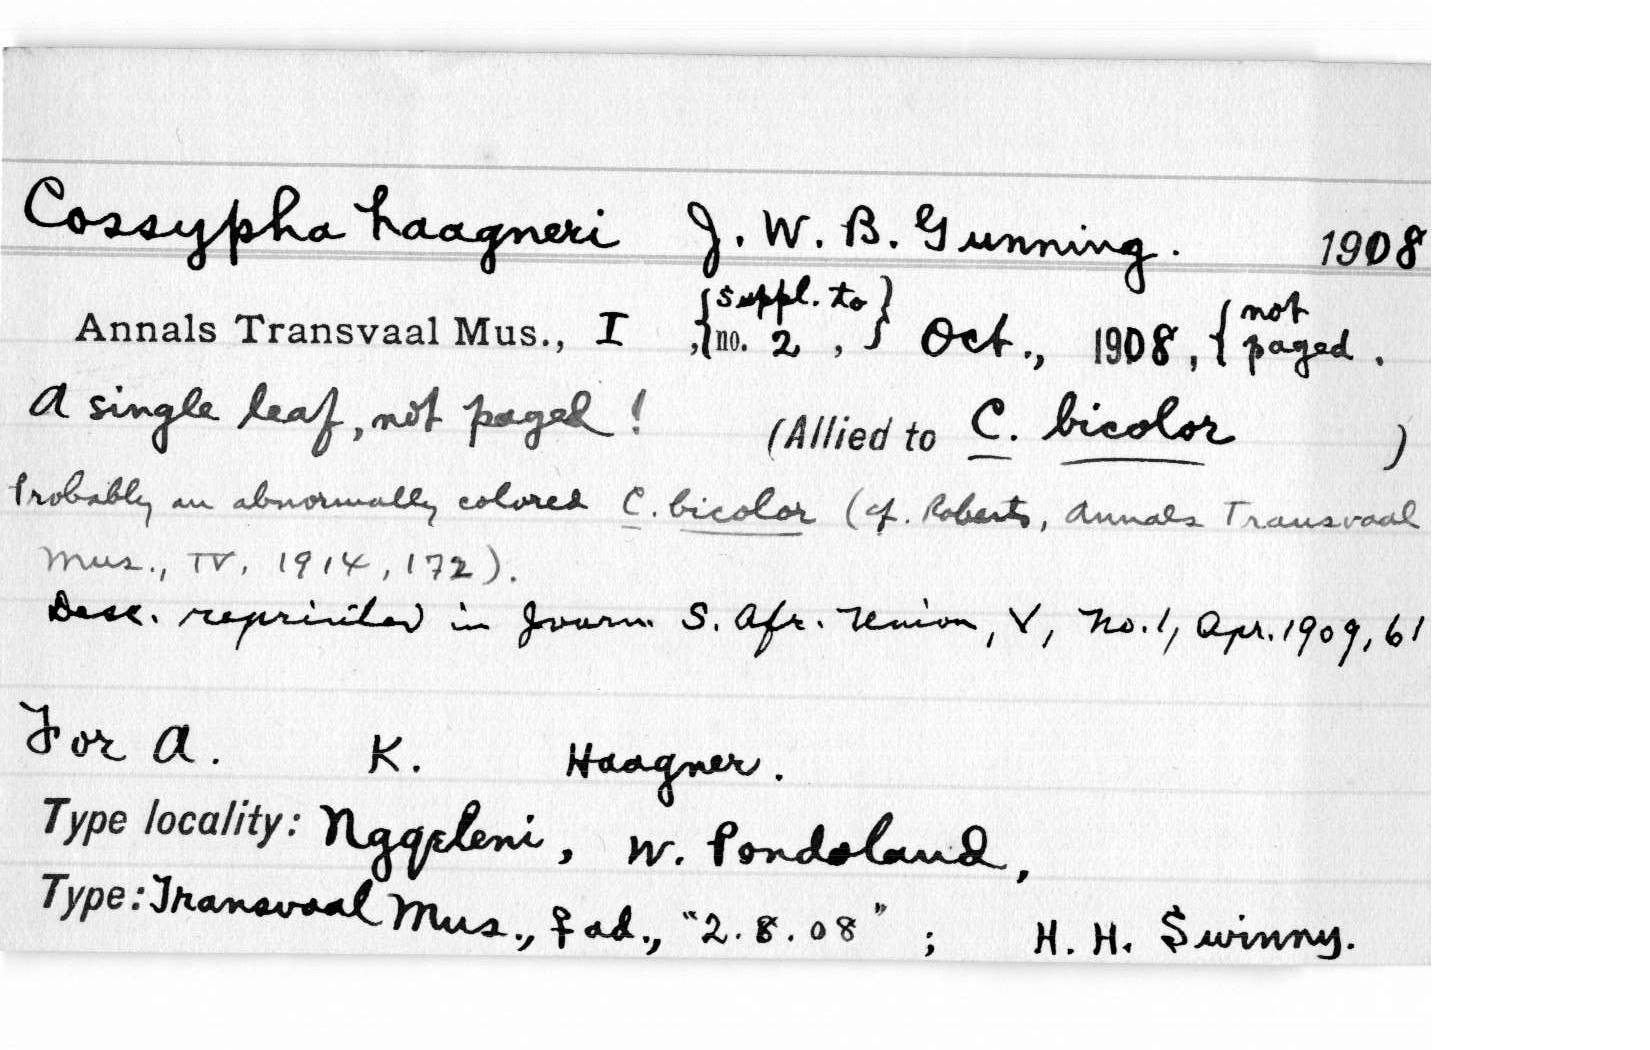 Cossypha haagneri J. W. B. Gunning. 1908
Annals Transvaal Mus., I, {suppl. to no. 2,} Oct., 1908, {not paged.
A single leaf, not paged! (Allied to C. bicolor)
Probably an abnormally colored C. bicolor (cf. Roberts, Annals Transvaal
Mus., IV, 1914, 172).
Desc. reprinted in Journ. S. Afr. Union, V, No. 1, Apr. 1909, 61
For A. K. Haagner.
Type locality: Ngqeleni, W. Pondoland,
Type: Transvaal Mus., ♀ ad., "2.8.08"; H. H. Swinny.